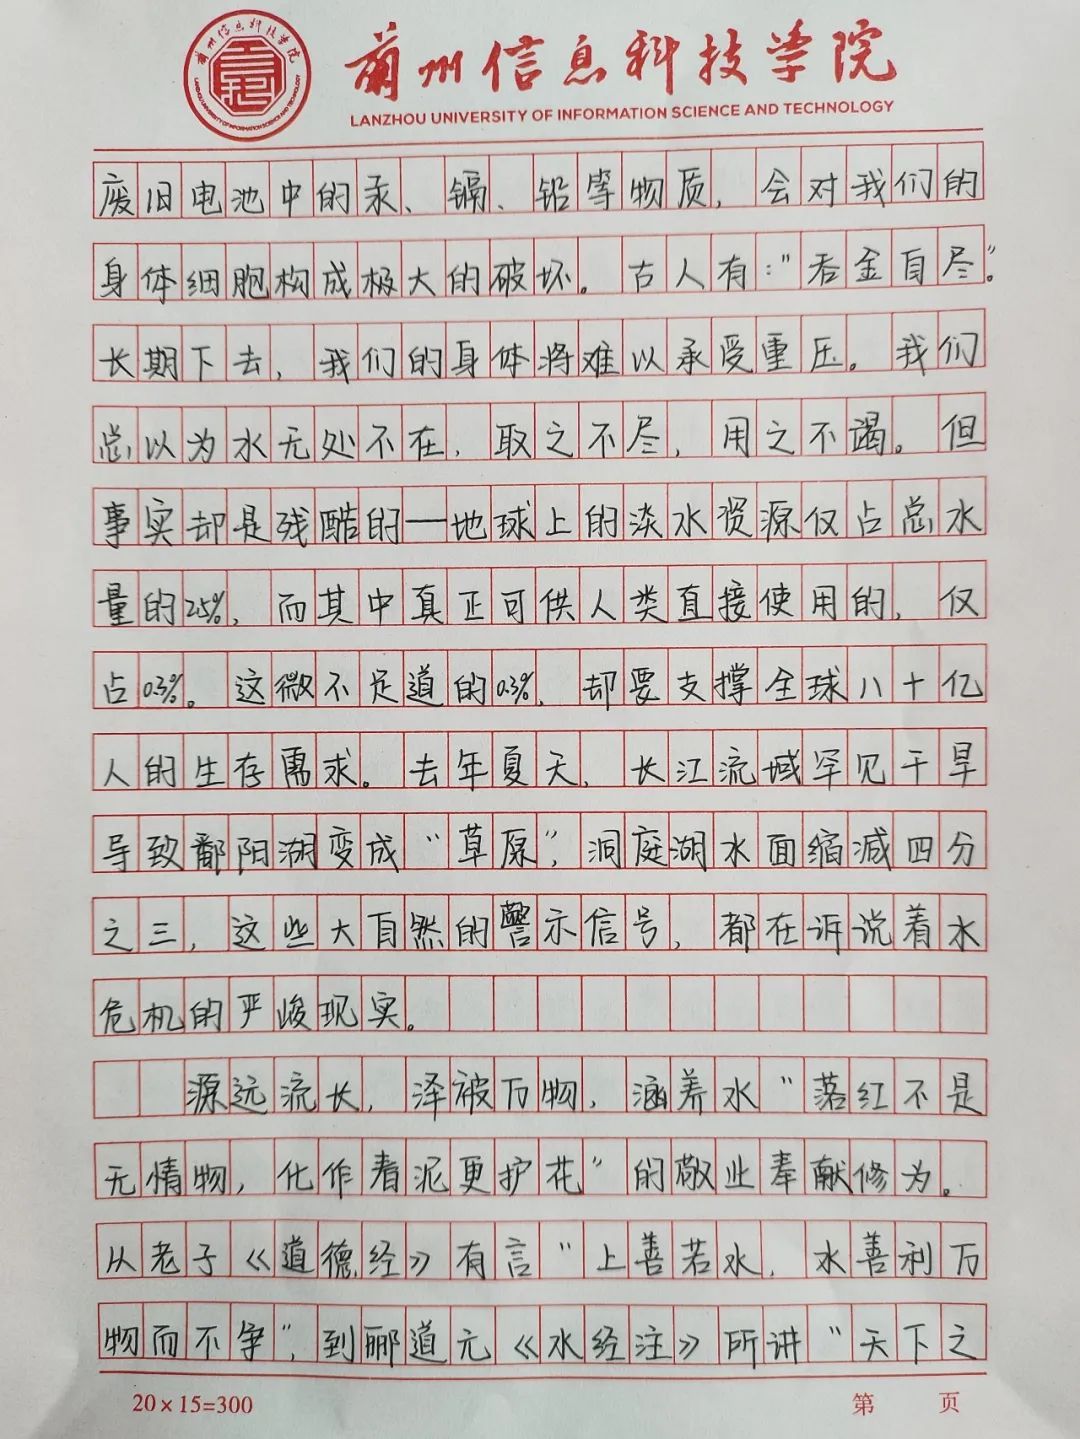 兰州信息科技学院
LANZHOU UNIVERSITY OF INFORMATION SCIENCE AND TECHNOLOGY
废旧电池中的汞、镉、铅等物质，会对我们的
身体细胞构成极大的破坏。古人有："吞金自尽"。
长期下去，我们的身体将难以承受重压。我们
总以为水无处不在，取之不尽，用之不竭。但
事实却是残酷的——地球上的淡水资源仅占总水
量的2.5%，而其中真正可供人类直接使用的，仅
占0.3%。这微不足道的0.3%，却要支撑全球八十亿
人的生存需求。去年夏天，长江流域罕见干旱
导致鄱阳湖变成"草原"，洞庭湖水面缩减四分
之三，这些大自然的警示信号，都在诉说着水
危机的严峻现实。
源远流长，泽被万物，涵养水"落红不是
无情物，化作春泥更护花"的敬业奉献修为。
从老子《道德经》有言"上善若水，水善利万
物而不争"，到郦道元《水经注》所讲"天下之
20×15=300
第 页